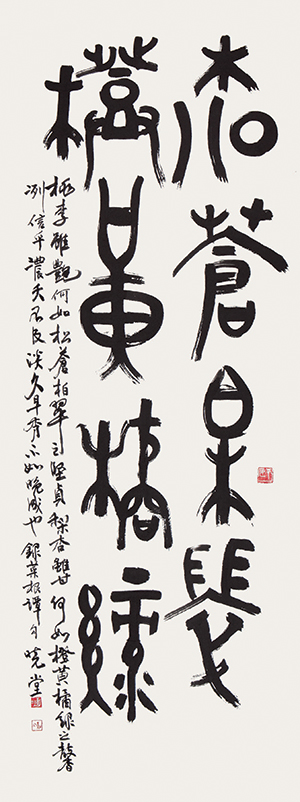 松蒼柏翠
橙黃橘綠
桃李雖艷何如松蒼柏翠之堅貞梨杏雖甘何如橙黃橘綠之馨
冽信乎濃夭不及淡久早秀不如晚成也 錄菜根譚句 曉堂